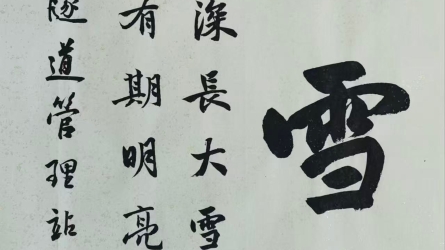 雪
深長大雪
有期明亮
隧道管理站